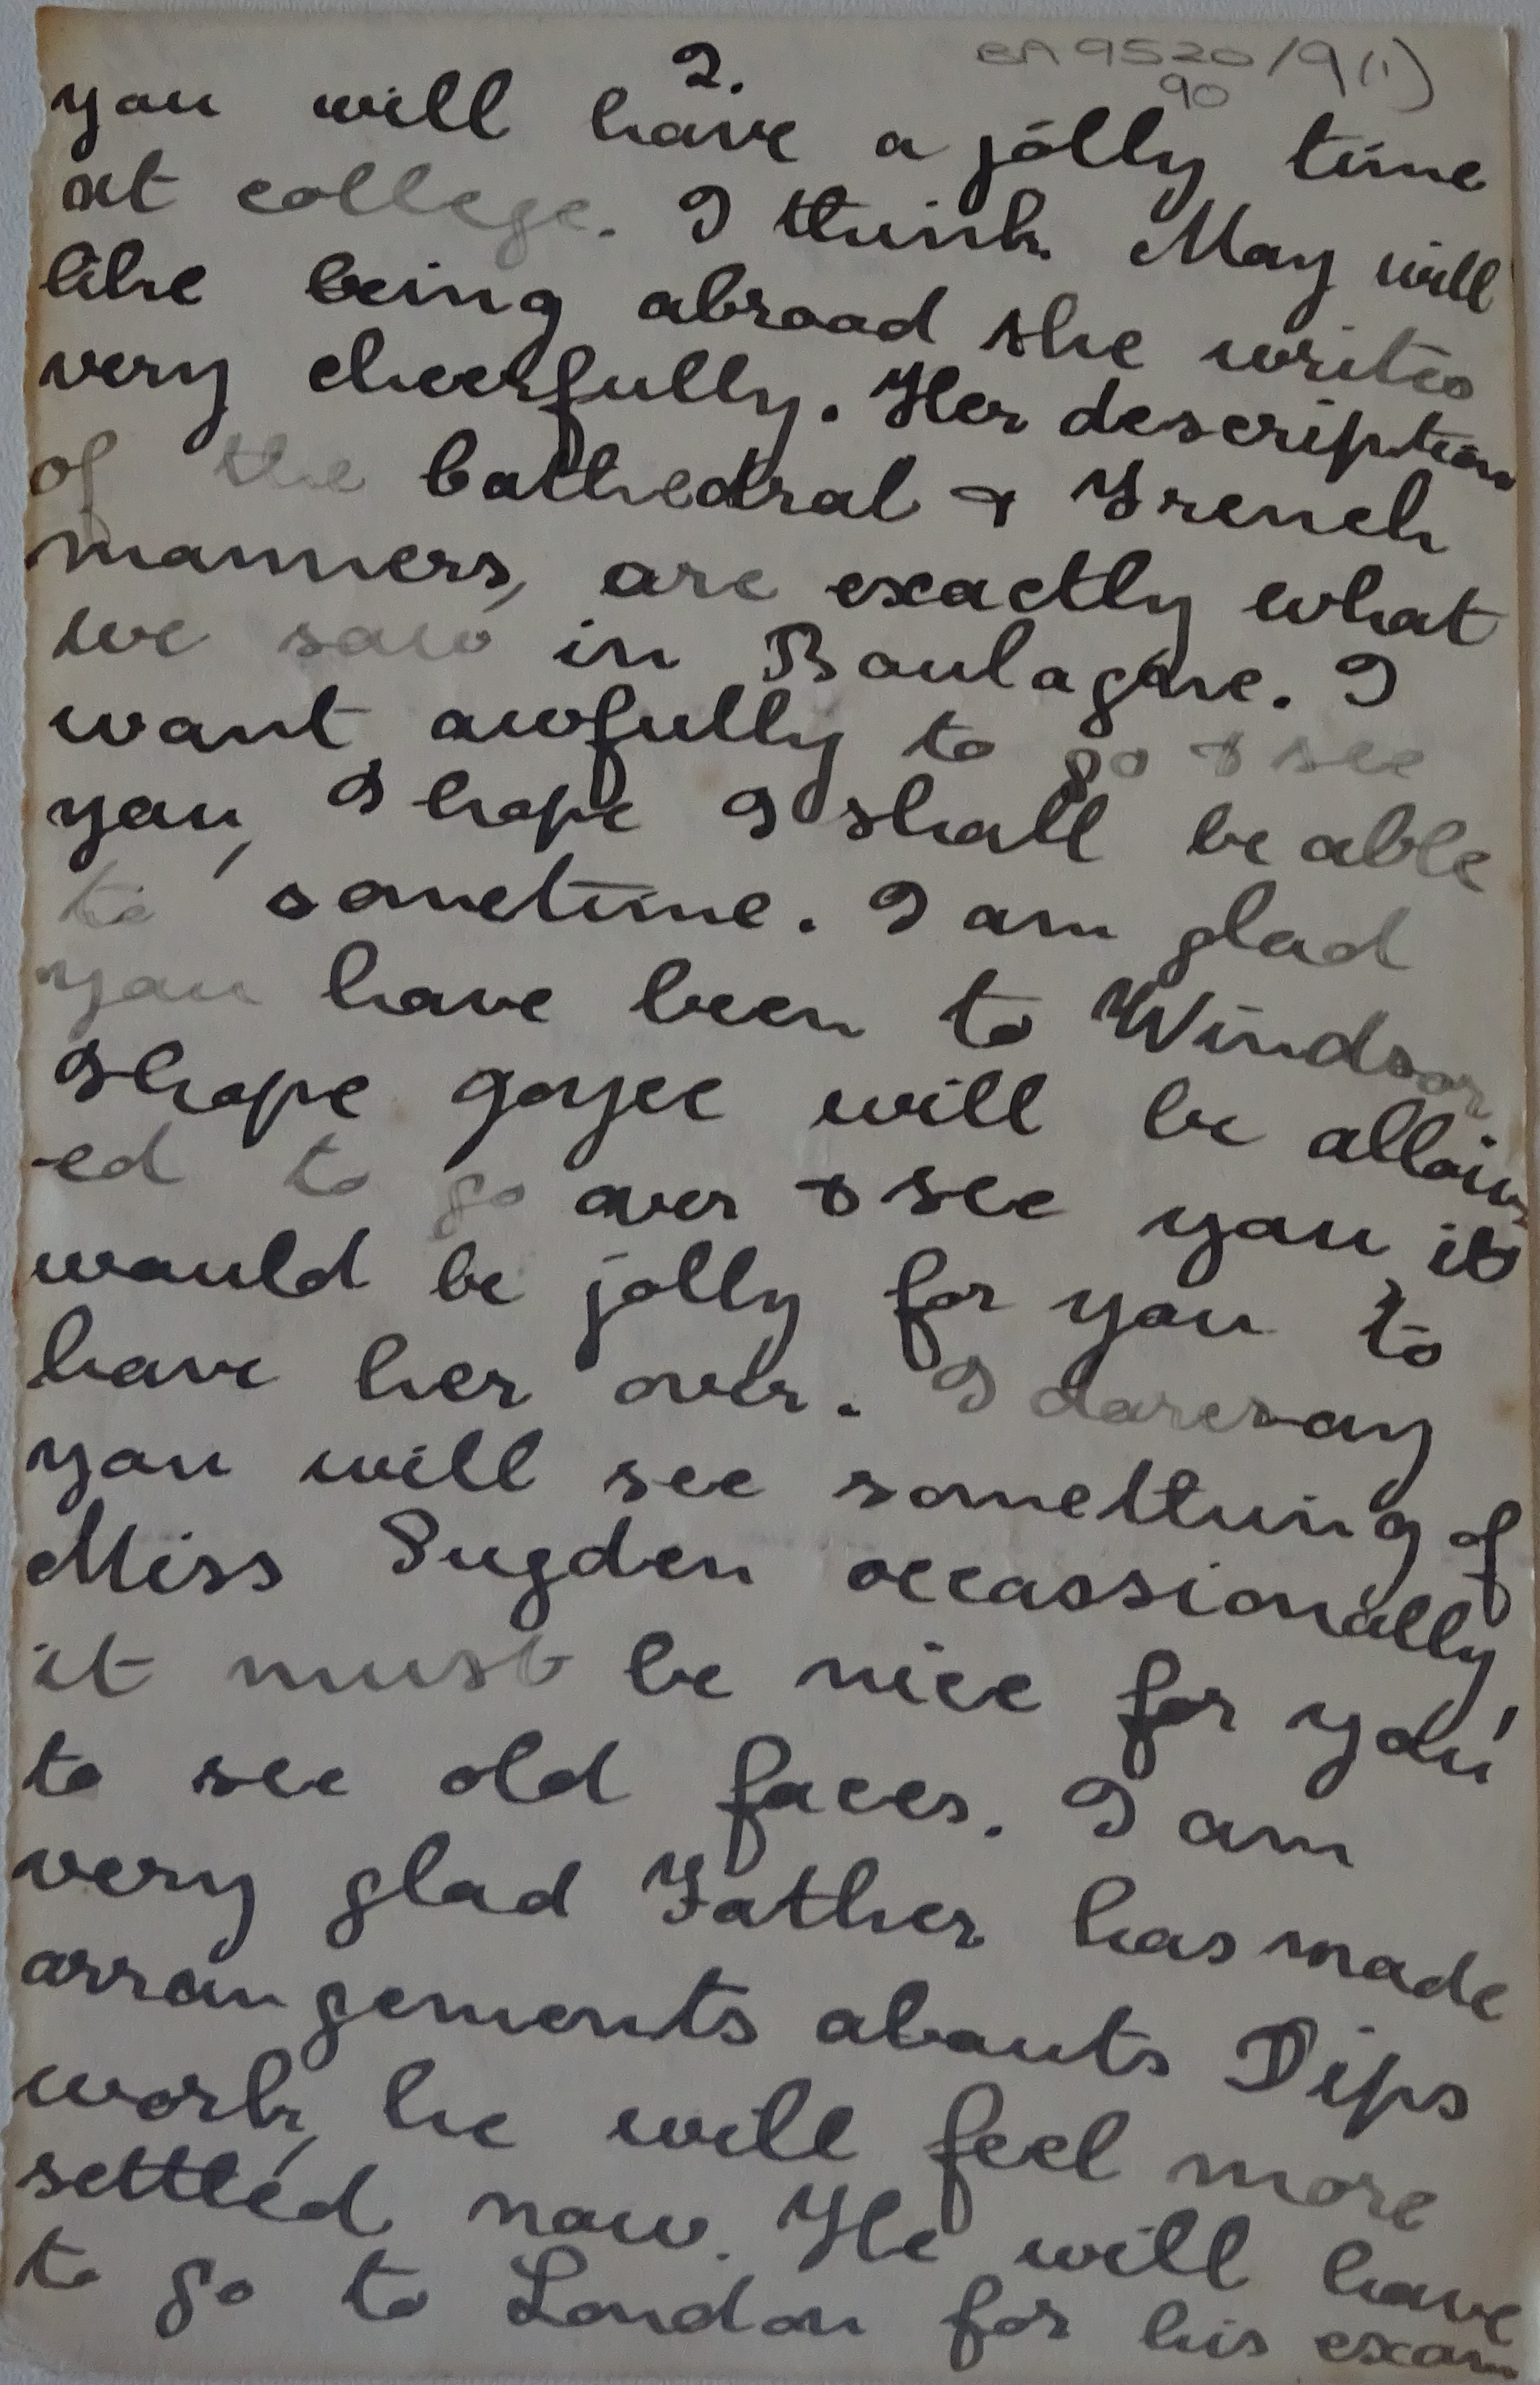 BA 9520/9(1)
90
2.
you will have a jolly time
at college. I think May will
like being abroad she writes
very cheerfully. Her description
of the Cathedral & French
manners, are exactly what
we saw in Boulagne. I
want awfully to go & see
you, I hope I shall be able
to sometime. I am glad
you have been to Windsor
I hope Joyce will be allow
-ed to go over & see you, it
would be jolly for you to
have her over. I daresay
you will see something of
Miss Sugden occassionally,
it must be nice for you
to see old faces. I am
very glad Father has made
arrangements abouts Dips
work, he will feel more
settled now. He will have
to go to London for his exam